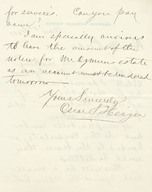 for services. Can you pay
same?
I am specially anxious
to learn the amount of the
notes for Mr. Symmes estate
as an account must be rendered
tomorrow —
Yours Sincerely
Oscar